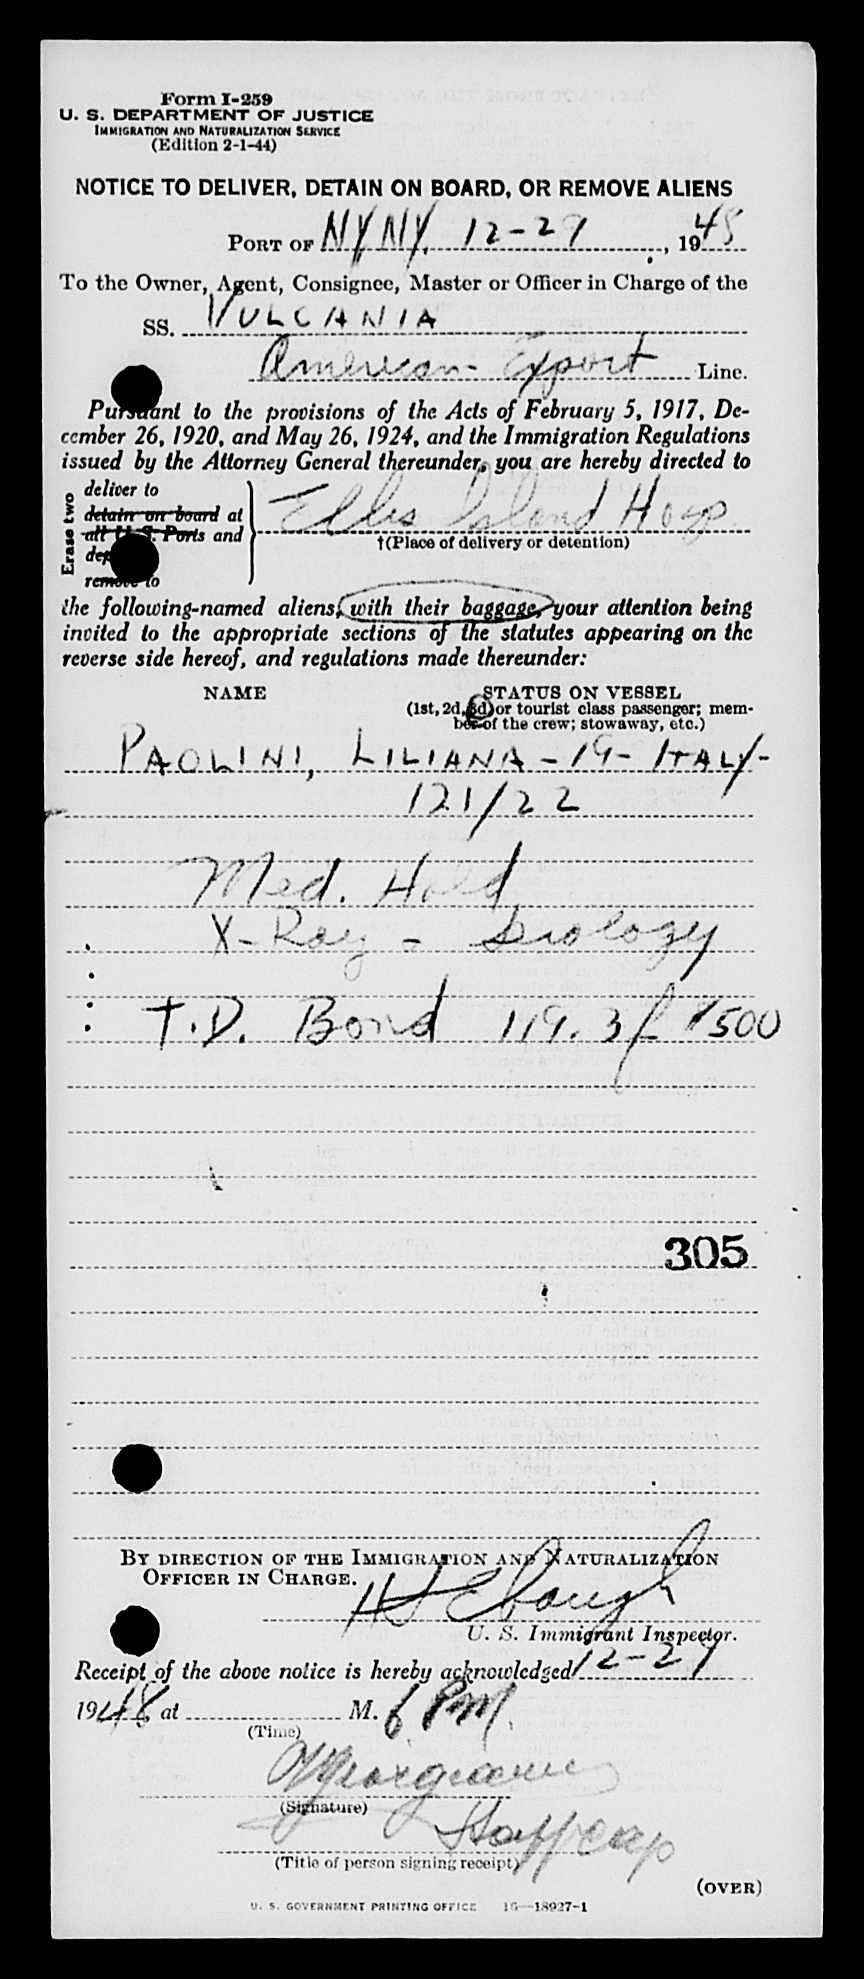 Form I-259
U. S. DEPARTMENT OF JUSTICE
IMMIGRATION AND NATURALIZATION SERVICE
(Edition 2-1-44)
NOTICE TO DELIVER, DETAIN ON BOARD, OR REMOVE ALIENS
PORT OF NY NY. 12-29, 1948
To the Owner, Agent, Consignee, Master or Officer in Charge of the
SS. VULCANIA
American Export Line.
Pursuant to the provisions of the Acts of February 5, 1917, De-
cember 26, 1920, and May 26, 1924, and the Immigration Regulations
issued by the Attorney General thereunder, you are hereby directed to
Erase two
deliver to
detain on board at
all U. S. Ports and
remove to
Ellis Island Hosp
†(Place of delivery or detention)
the following-named aliens, with their baggage, your attention being
invited to the appropriate sections of the statutes appearing on the
reverse side hereof, and regulations made thereunder:
NAME STATUS ON VESSEL
(1st, 2d, 3d, or tourist class passenger; mem-
ber of the crew; stowaway, etc.)
PAOLINI, LILIANA - 19 - ITALY -
121/22
Med. Hold
X-Ray - Serology
T.D. Bond 119.3f $500
305
BY DIRECTION OF THE IMMIGRATION AND NATURALIZATION
OFFICER IN CHARGE.
U. S. Immigrant Inspector.
Receipt of the above notice is hereby acknowledged 12-29
1948 at M. 6 PM.
(Time)
(Signature)
Staff Cap
(Title of person signing receipt)
(OVER)
U. S. GOVERNMENT PRINTING OFFICE 16—18927-1